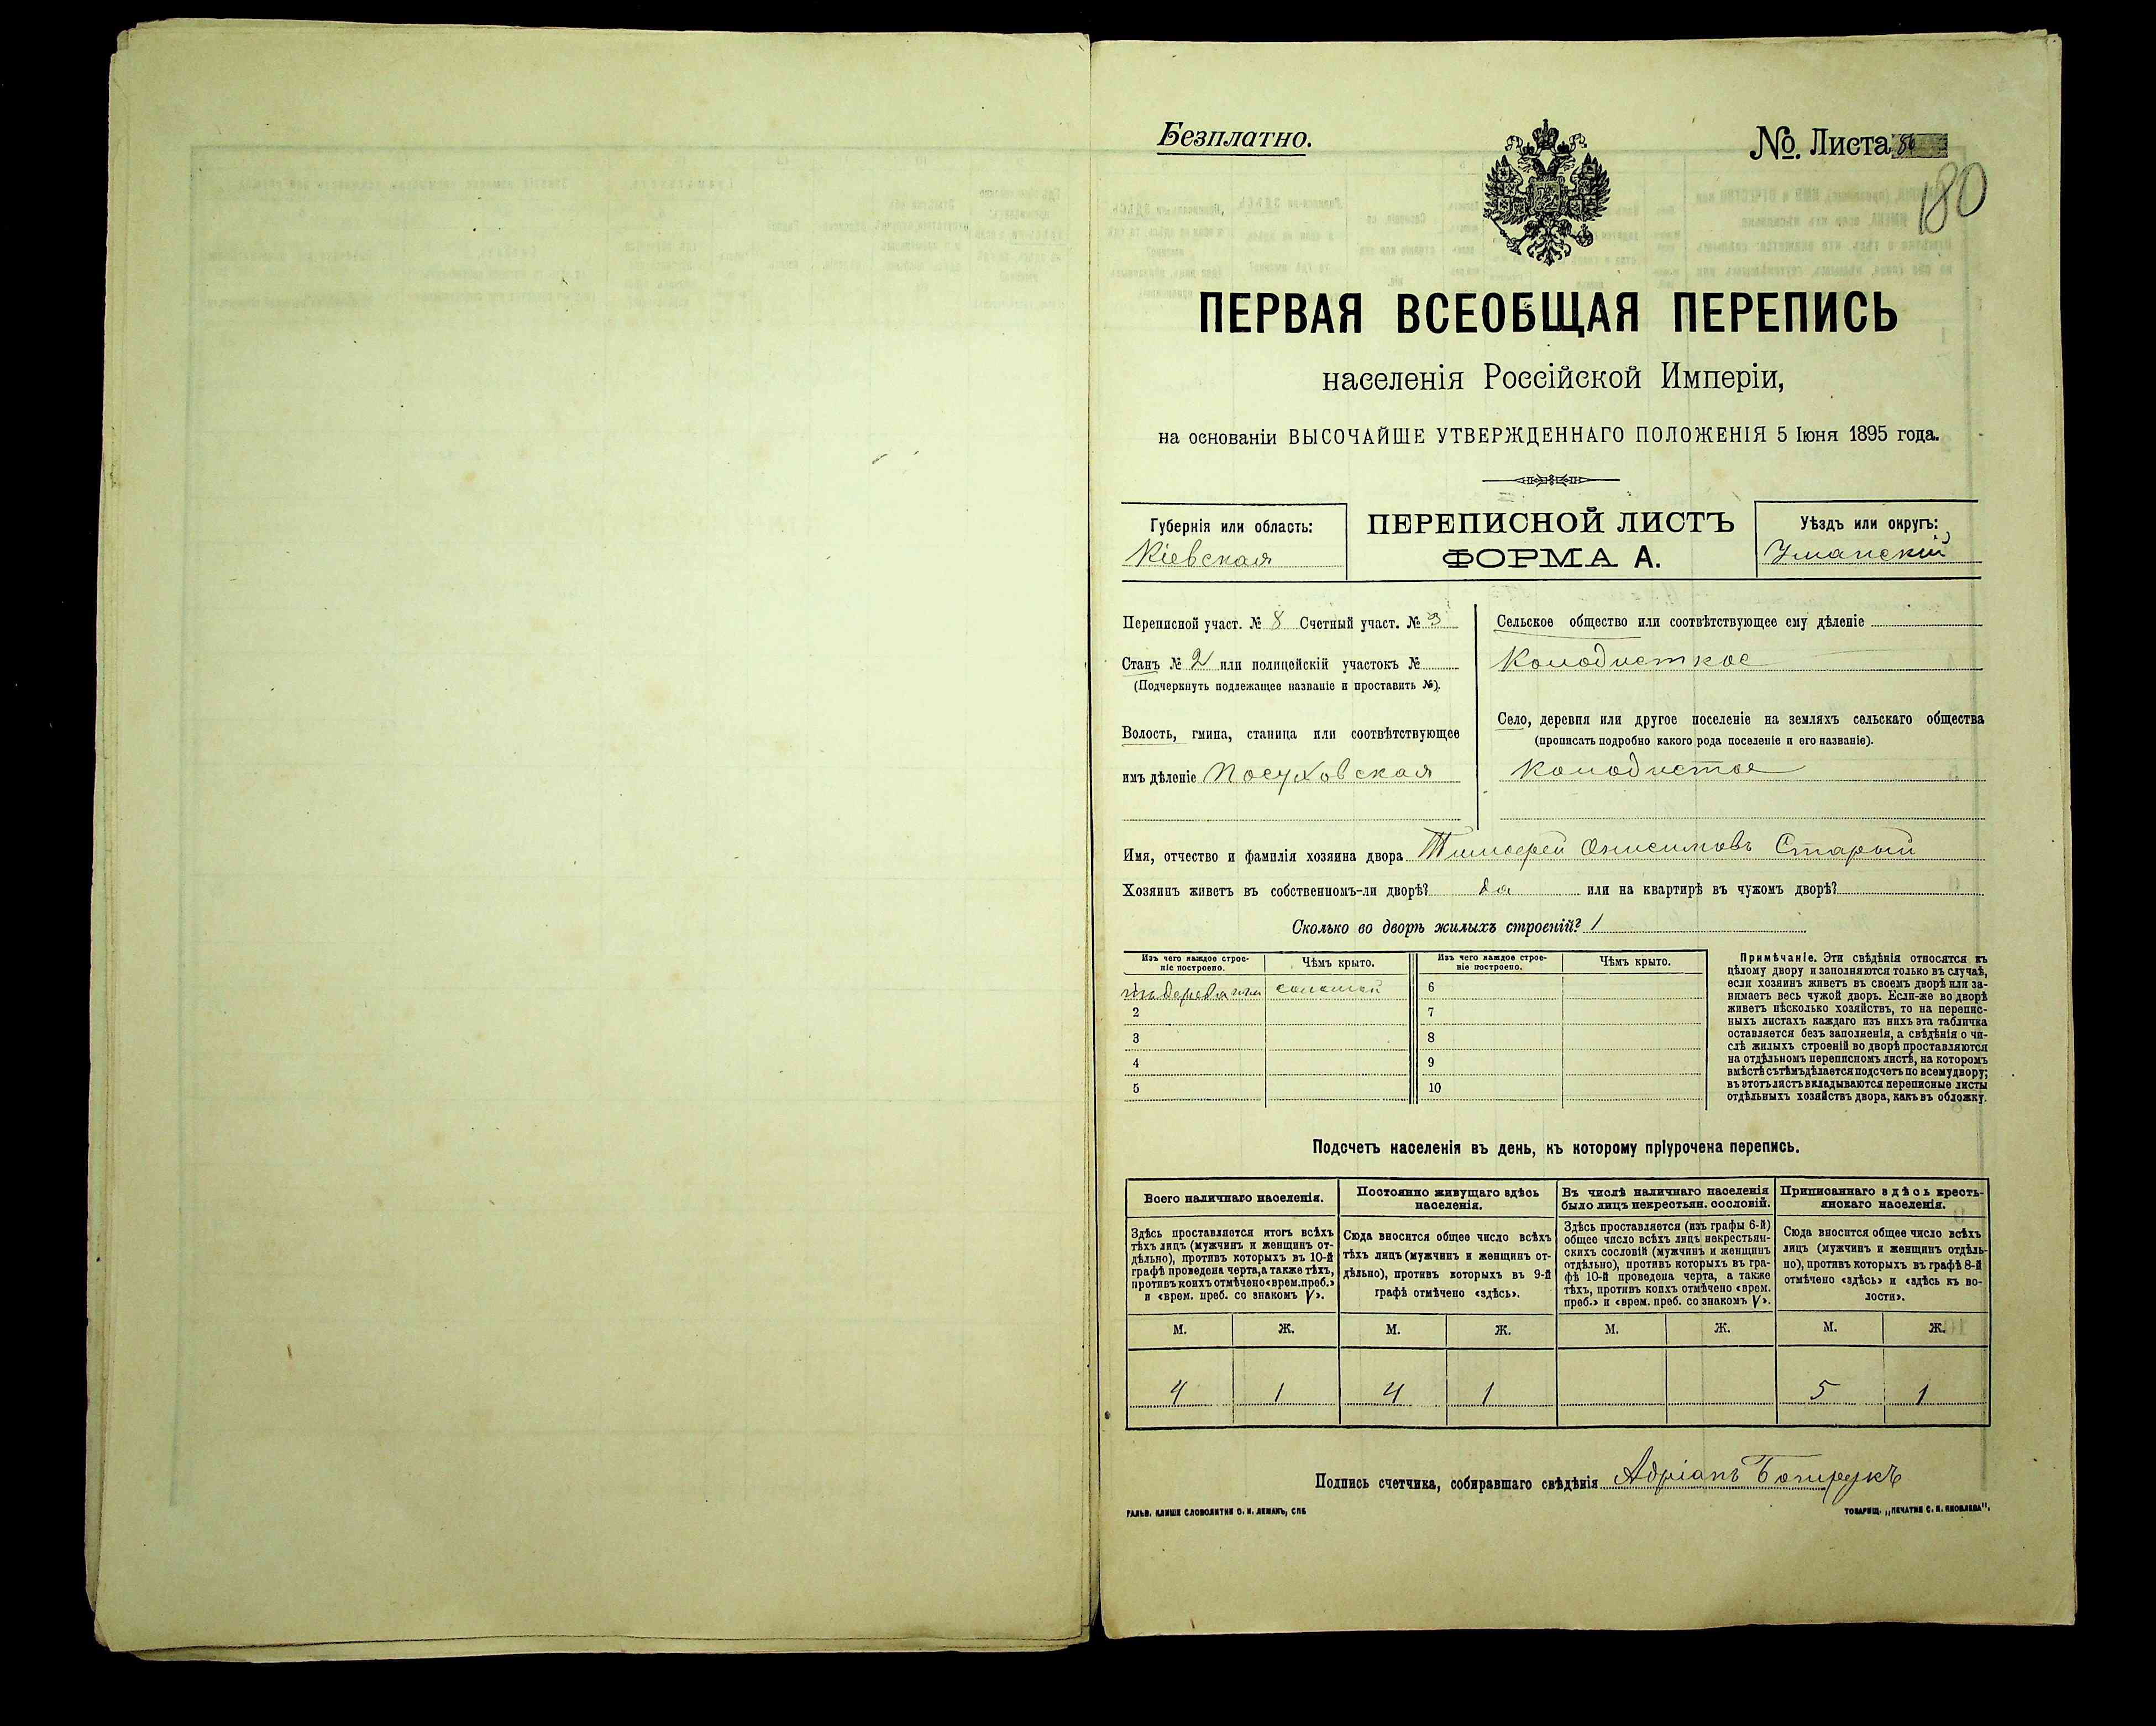 Безплатно.
№. Листа
180
ПЕРВАЯ ВСЕОБЩАЯ ПЕРЕПИСЬ
населенія Россійской Имперіи,
на основаніи ВЫСОЧАЙШЕ УТВЕРЖДЕННАГО ПОЛОЖЕНІЯ 5 Іюня 1895 года.
Губернія или область:
Кіевская
ПЕРЕПИСНОЙ ЛИСТЪ
ФОРМА А.
Уѣздъ или округъ:
Уманскій
Переписной участ. № 8 Счетный участ. № 3
Станъ № 2 или полицейскій участокъ №
(Подчеркнуть подлежащее названіе и проставить №).
Волость, гмина, станица или соотвѣтствующее
имъ дѣленіе Посуховская
Сельское общество или соотвѣтствующее ему дѣленіе
Колодисткое
Село, деревня или другое поселеніе на земляхъ сельскаго общества
(прописать подробно какого рода поселеніе и его названіе).
Колодистое
Имя, отчество и фамилія хозяина двора Тимофей Онисимовъ Старый
Хозяинъ живетъ въ собственномъ-ли дворѣ? да или на квартирѣ въ чужомъ дворѣ?
Сколько во дворѣ жилыхъ строеній? 1
Изъ чего каждое строе-
ніе построено.
Чѣмъ крыто.
Изъ чего каждое строе-
ніе построено.
Чѣмъ крыто.
соломой
6
2
7
3
8
4
9
5
10
Примѣчаніе. Эти свѣдѣнія относятся къ
цѣлому двору и заполняются только въ случаѣ,
если хозяинъ живетъ въ своемъ дворѣ или за-
нимаетъ весь чужой дворъ. Если-же во дворѣ
живетъ нѣсколько хозяйствъ, то на перепис-
ныхъ листахъ каждаго изъ нихъ эта табличка
оставляется безъ заполненія, а свѣдѣнія о чи-
слѣ жилыхъ строеній во дворѣ проставляются
на отдѣльномъ переписномъ листѣ, на которомъ
вмѣстѣ съ тѣмъ дѣлается подсчетъ по всему двору;
въ этотъ листъ вкладываются переписные листы
отдѣльныхъ хозяйствъ двора, какъ въ обложку.
Подсчетъ населенія въ день, къ которому пріурочена перепись.
Всего наличнаго населенія.
Здѣсь проставляется итогъ всѣхъ
тѣхъ лицъ (мужчинъ и женщинъ от-
дѣльно), противъ которыхъ въ 10-й
графѣ проведена черта, а также тѣхъ,
противъ коихъ отмѣчено «врем. преб.»
и «врем. преб. со знакомъ V».
Постоянно живущаго здѣсь
населенія.
Сюда вносится общее число всѣхъ
тѣхъ лицъ (мужчинъ и женщинъ от-
дѣльно), противъ которыхъ въ 9-й
графѣ отмѣчено «здѣсь».
Въ числѣ наличнаго населенія
было лицъ некрестьян. сословій.
Здѣсь проставляется (изъ графы 6-й)
общее число всѣхъ лицъ некрестьян-
скихъ сословій (мужчинъ и женщинъ
отдѣльно), противъ которыхъ въ гра-
фѣ 10-й проведена черта, а также
тѣхъ, противъ коихъ отмѣчено «врем.
преб.» и «врем. преб. со знакомъ V».
Приписаннаго здѣсь кресть-
янскаго населенія.
Сюда вносится общее число всѣхъ
лицъ (мужчинъ и женщинъ отдѣль-
но), противъ которыхъ въ графѣ 8-й
отмѣчено «здѣсь» и «здѣсь къ во-
лости».
М. Ж. М. Ж. М. Ж. М. Ж.
4 1 4 1 5 1
Подпись счетчика, собиравшаго свѣдѣнія Адріанъ
ГАЛЬВ. КЛИШЕ СЛОВОЛИТНИ О. И. ЛЕМАНЪ, СПБ
ТОВАРИЩ. „ПЕЧАТНЯ С. П. ЯКОВЛЕВА".